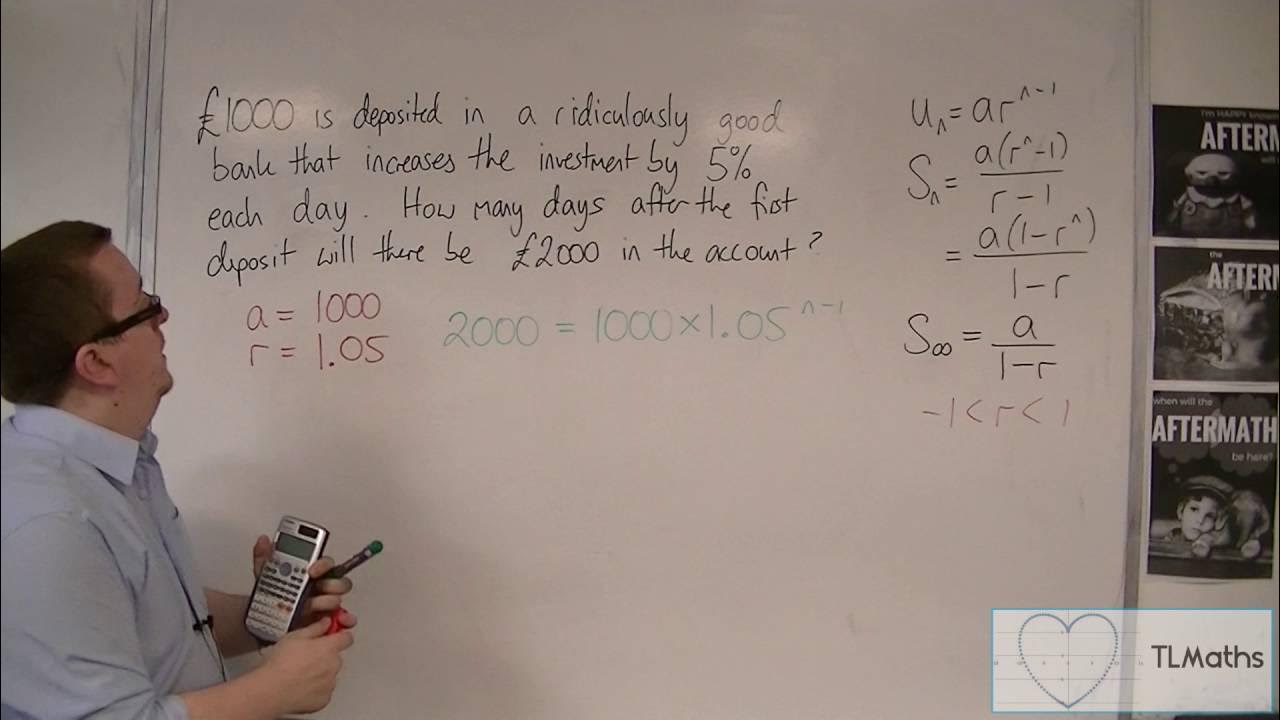 £1000 is deposited in a ridiculously good
bank that increases the investment by 5%
each day. How many days after the first
deposit will there be £2000 in the account?
a = 1000
r = 1.05
2000 = 1000×1.05^(n-1)
uₙ = ar^(n-1)
Sₙ = a(r^n-1)/(r-1)
= a(1-r^n)/(1-r)
S∞ = a/(1-r)
-1 < r < 1
AFTERM
the
AFTERM
when will the
AFTERMATH
be here?
TLMaths